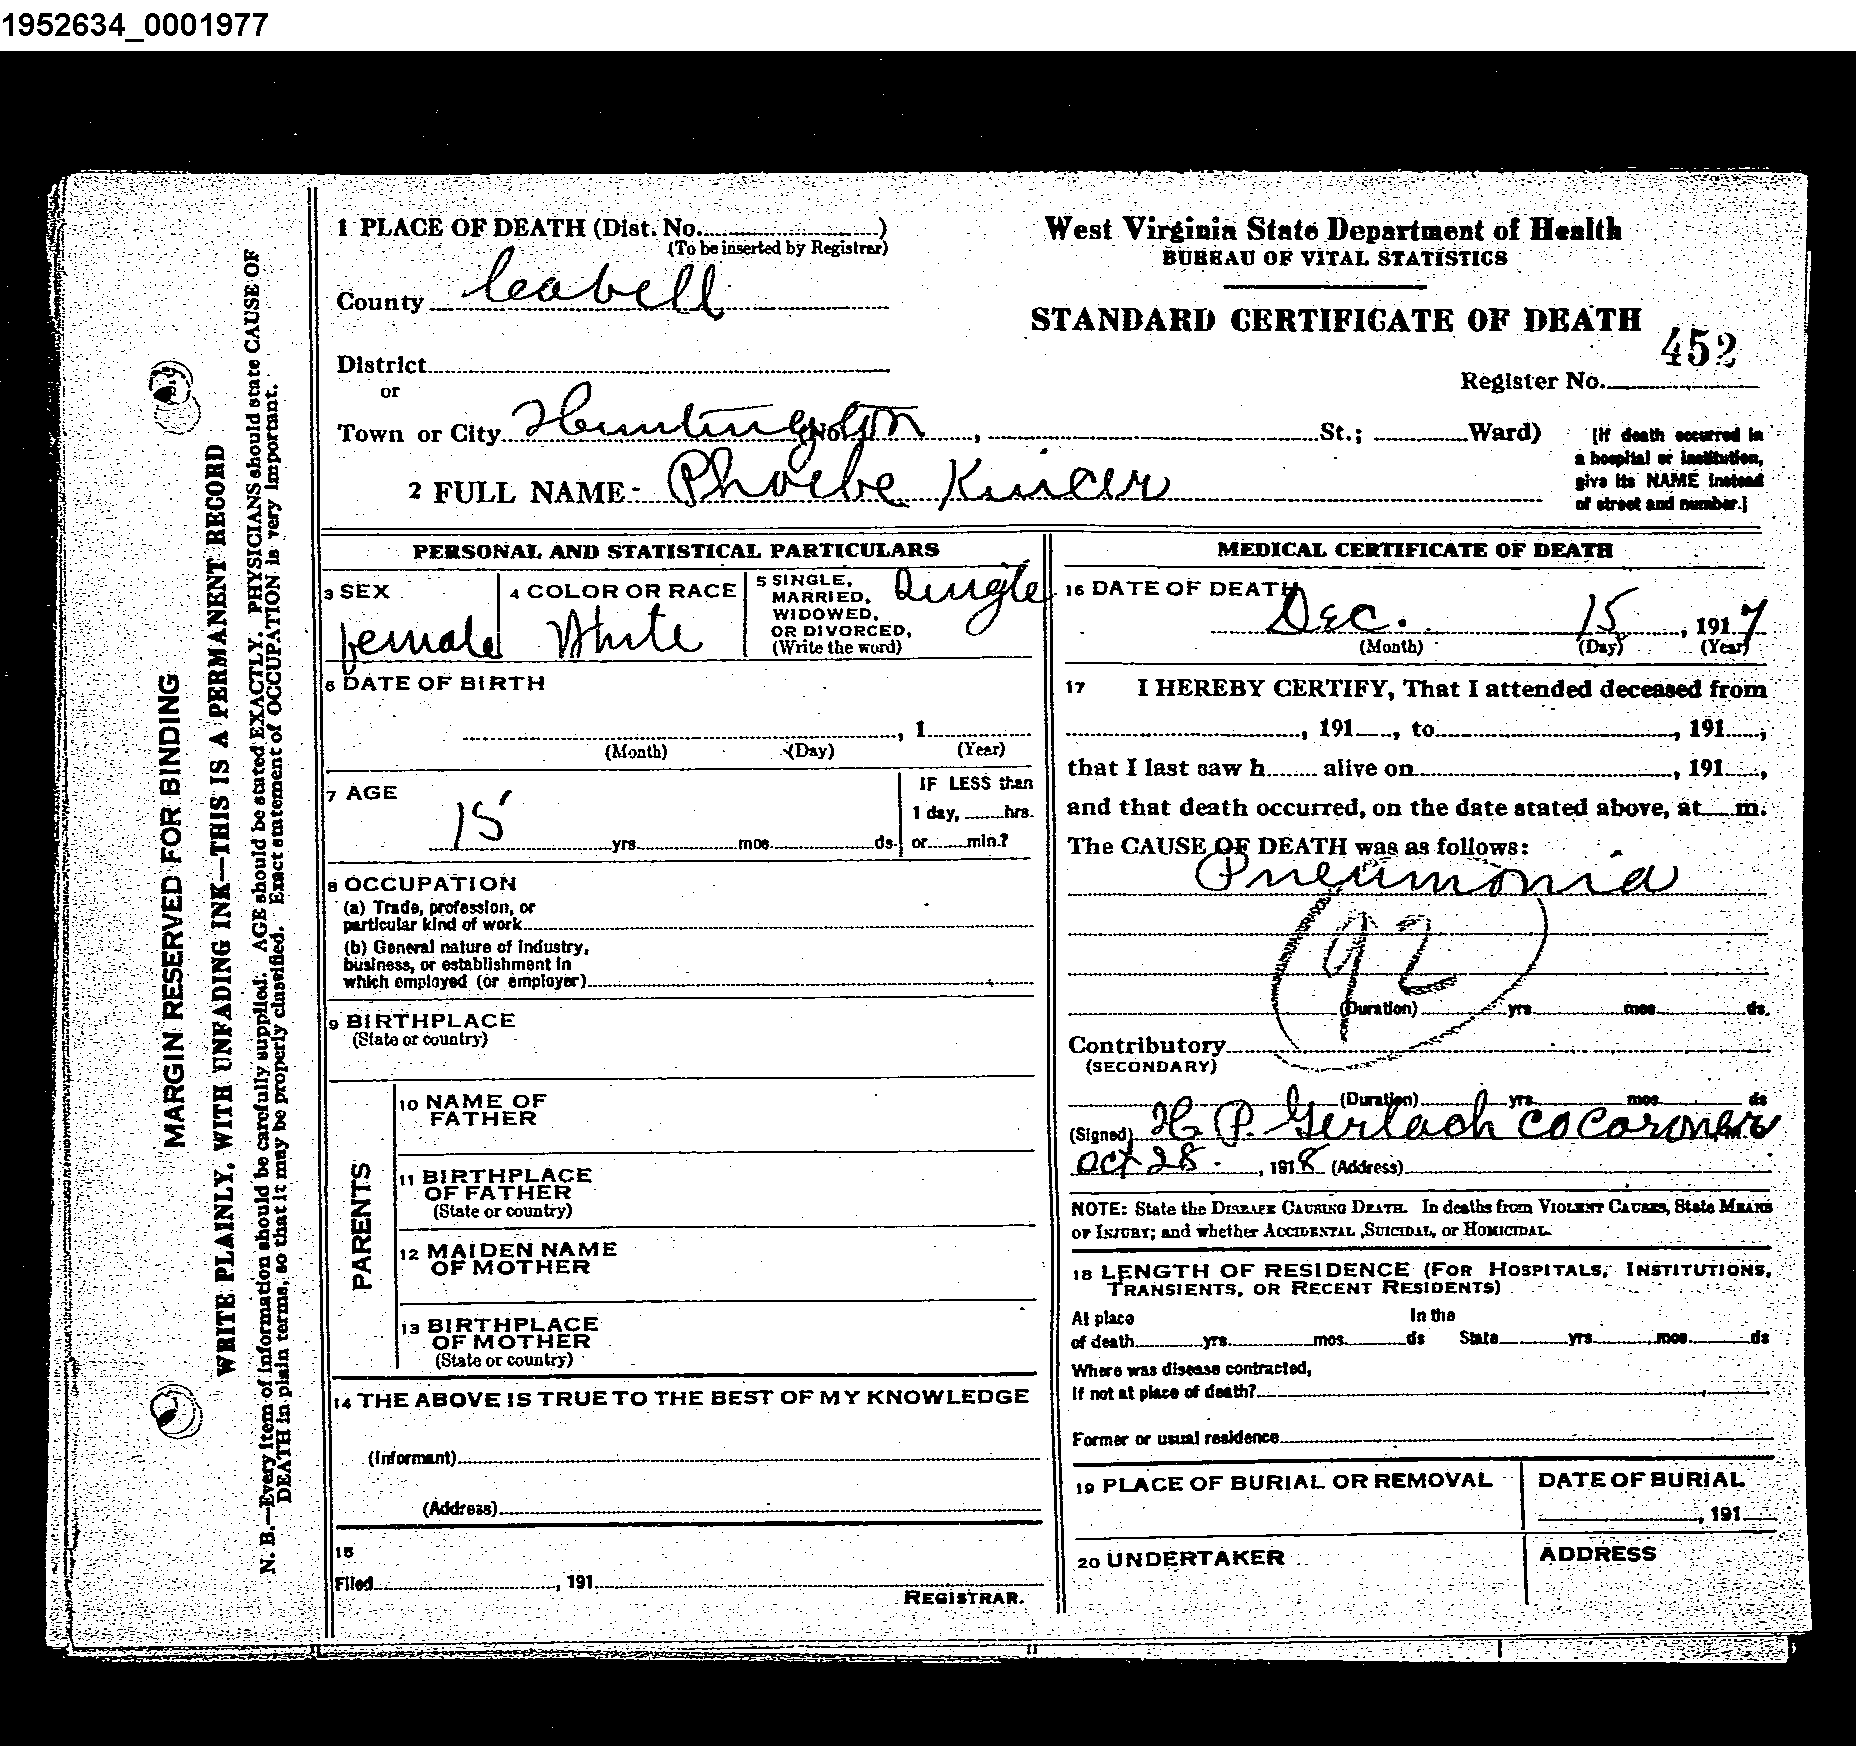 1952634_0001977
MARGIN RESERVED FOR BINDING
WRITE PLAINLY, WITH UNFADING INK—THIS IS A PERMANENT RECORD
N. B.—Every item of information should be carefully supplied. AGE should be stated EXACTLY. PHYSICIANS should state CAUSE OF
DEATH in plain terms, so that it may be properly classified. Exact statement of OCCUPATION is very important.
1 PLACE OF DEATH (Dist. No. )
(To be inserted by Registrar)
County Cabell
District
or
Town or City Huntington (No. , St.; Ward)
2 FULL NAME Phoebe Kincer
West Virginia State Department of Health
BUREAU OF VITAL STATISTICS
STANDARD CERTIFICATE OF DEATH
452
Register No.
[If death occurred in
a hospital or institution,
give its NAME instead
of street and number.]
PERSONAL AND STATISTICAL PARTICULARS
3 SEX
female
4 COLOR OR RACE
White
5 SINGLE,
MARRIED,
WIDOWED,
OR DIVORCED,
(Write the word)
Single
6 DATE OF BIRTH
, 1
(Month) (Day) (Year)
7 AGE
15 yrs. mos. ds.
IF LESS than
1 day, hrs.
or min.?
8 OCCUPATION
(a) Trade, profession, or
particular kind of work
(b) General nature of industry,
business, or establishment in
which employed (or employer)
9 BIRTHPLACE
(State or country)
PARENTS
10 NAME OF
FATHER
11 BIRTHPLACE
OF FATHER
(State or country)
12 MAIDEN NAME
OF MOTHER
13 BIRTHPLACE
OF MOTHER
(State or country)
14 THE ABOVE IS TRUE TO THE BEST OF MY KNOWLEDGE
(Informant)
(Address)
15
Filed , 191
REGISTRAR.
MEDICAL CERTIFICATE OF DEATH
16 DATE OF DEATH
Dec. 15, 1917
(Month) (Day) (Year)
17 I HEREBY CERTIFY, That I attended deceased from
, 191 , to , 191 ,
that I last saw h alive on , 191 ,
and that death occurred, on the date stated above, at m.
The CAUSE OF DEATH was as follows:
Pneumonia
92
(Duration) yrs. mos. ds.
Contributory
(SECONDARY)
(Duration) yrs. mos. ds
(Signed) H. P. Gerlach Co Coroner
Oct 28. , 1918 (Address)
NOTE: State the DISEASE CAUSING DEATH. In deaths from VIOLENT CAUSES, State MEANS
OF INJURY; and whether ACCIDENTAL, SUICIDAL, or HOMICIDAL.
18 LENGTH OF RESIDENCE (FOR HOSPITALS, INSTITUTIONS,
TRANSIENTS, OR RECENT RESIDENTS)
At place In the
of death yrs. mos. ds State yrs. mos. ds
Where was disease contracted,
If not at place of death?
Former or usual residence
19 PLACE OF BURIAL OR REMOVAL
DATE OF BURIAL
, 191
20 UNDERTAKER
ADDRESS